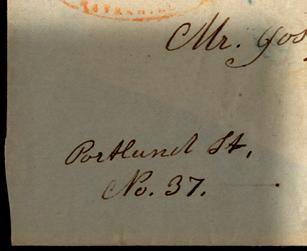 Mr. Jos
Portland St,
No. 37.